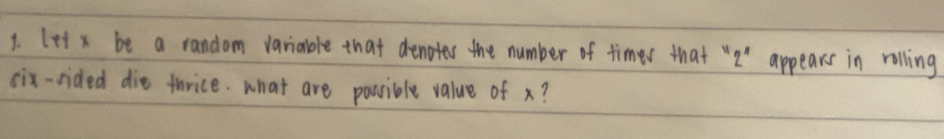 1. let x be a random variable that denotes the number of times that "2" appears in rolling
six-sided die thrice. What are possible value of x?